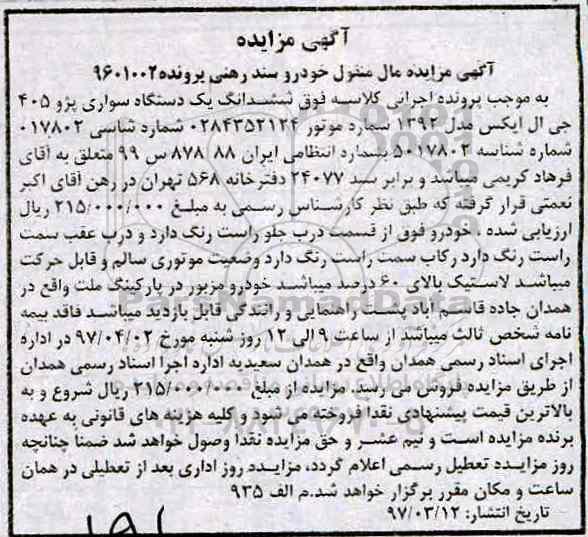 آگهی مزایده
آگهی مزایده مال منقول خودرو سند رهنی پرونده ۹۶۰۱۰۰۲
به موجب پرونده اجرائی کلاسه فوق ششدانگ یک دستگاه سواری پژو ۴۰۵
جی ال ایکس مدل ۱۳۹۲ شماره موتور ۰۲۸۴۳۵۲۱۲۴ شماره شاسی ۰۱۷۸۰۲
شماره شناسه ۵۰۱۷۸۰۲ بشماره انتظامی ایران ۸۸ ۸۷۸ س ۹۹ متعلق به آقای
فرهاد کریمی میباشد و برابر سند ۲۴۰۷۷ دفترخانه ۵۶۸ تهران در رهن آقای اکبر
نعمتی قرار گرفته که طبق نظر کارشناس رسمی به مبلغ ۲۱۵/۰۰۰/۰۰۰ ریال
ارزیابی شده ، خودرو فوق از قسمت درب جلو راست رنگ دارد و درب عقب سمت
راست رنگ دارد رکاب سمت راست رنگ دارد وضعیت موتوری سالم و قابل حرکت
میباشد لاستیک بالای ۶۰ درصد میباشد خودرو مزبور در پارکینگ ملت واقع در
همدان جاده قاسم آباد پشت راهنمایی و رانندگی قابل بازدید میباشد فاقد بیمه
نامه شخص ثالث میباشد از ساعت ۹ الی ۱۲ روز شنبه مورخ ۹۷/۰۴/۰۲ در اداره
اجرای اسناد رسمی همدان واقع در همدان سعیدیه اداره اجرا اسناد رسمی همدان
از طریق مزایده فروش می رسد. مزایده از مبلغ ۲۱۵/۰۰۰/۰۰۰ ریال شروع و به
بالاترین قیمت پیشنهادی نقدا فروخته می شود و کلیه هزینه های قانونی به عهده
برنده مزایده است و نیم عشر و حق مزایده نقدا وصول خواهد شد ضمنا چنانچه
روز مزایده تعطیل رسمی اعلام گردد، مزایده روز اداری بعد از تعطیلی در همان
ساعت و مکان مقرر برگزار خواهد شد.م الف ۹۳۵
تاریخ انتشار: ۹۷/۰۳/۱۲
۱۹۱
ParsNamadData